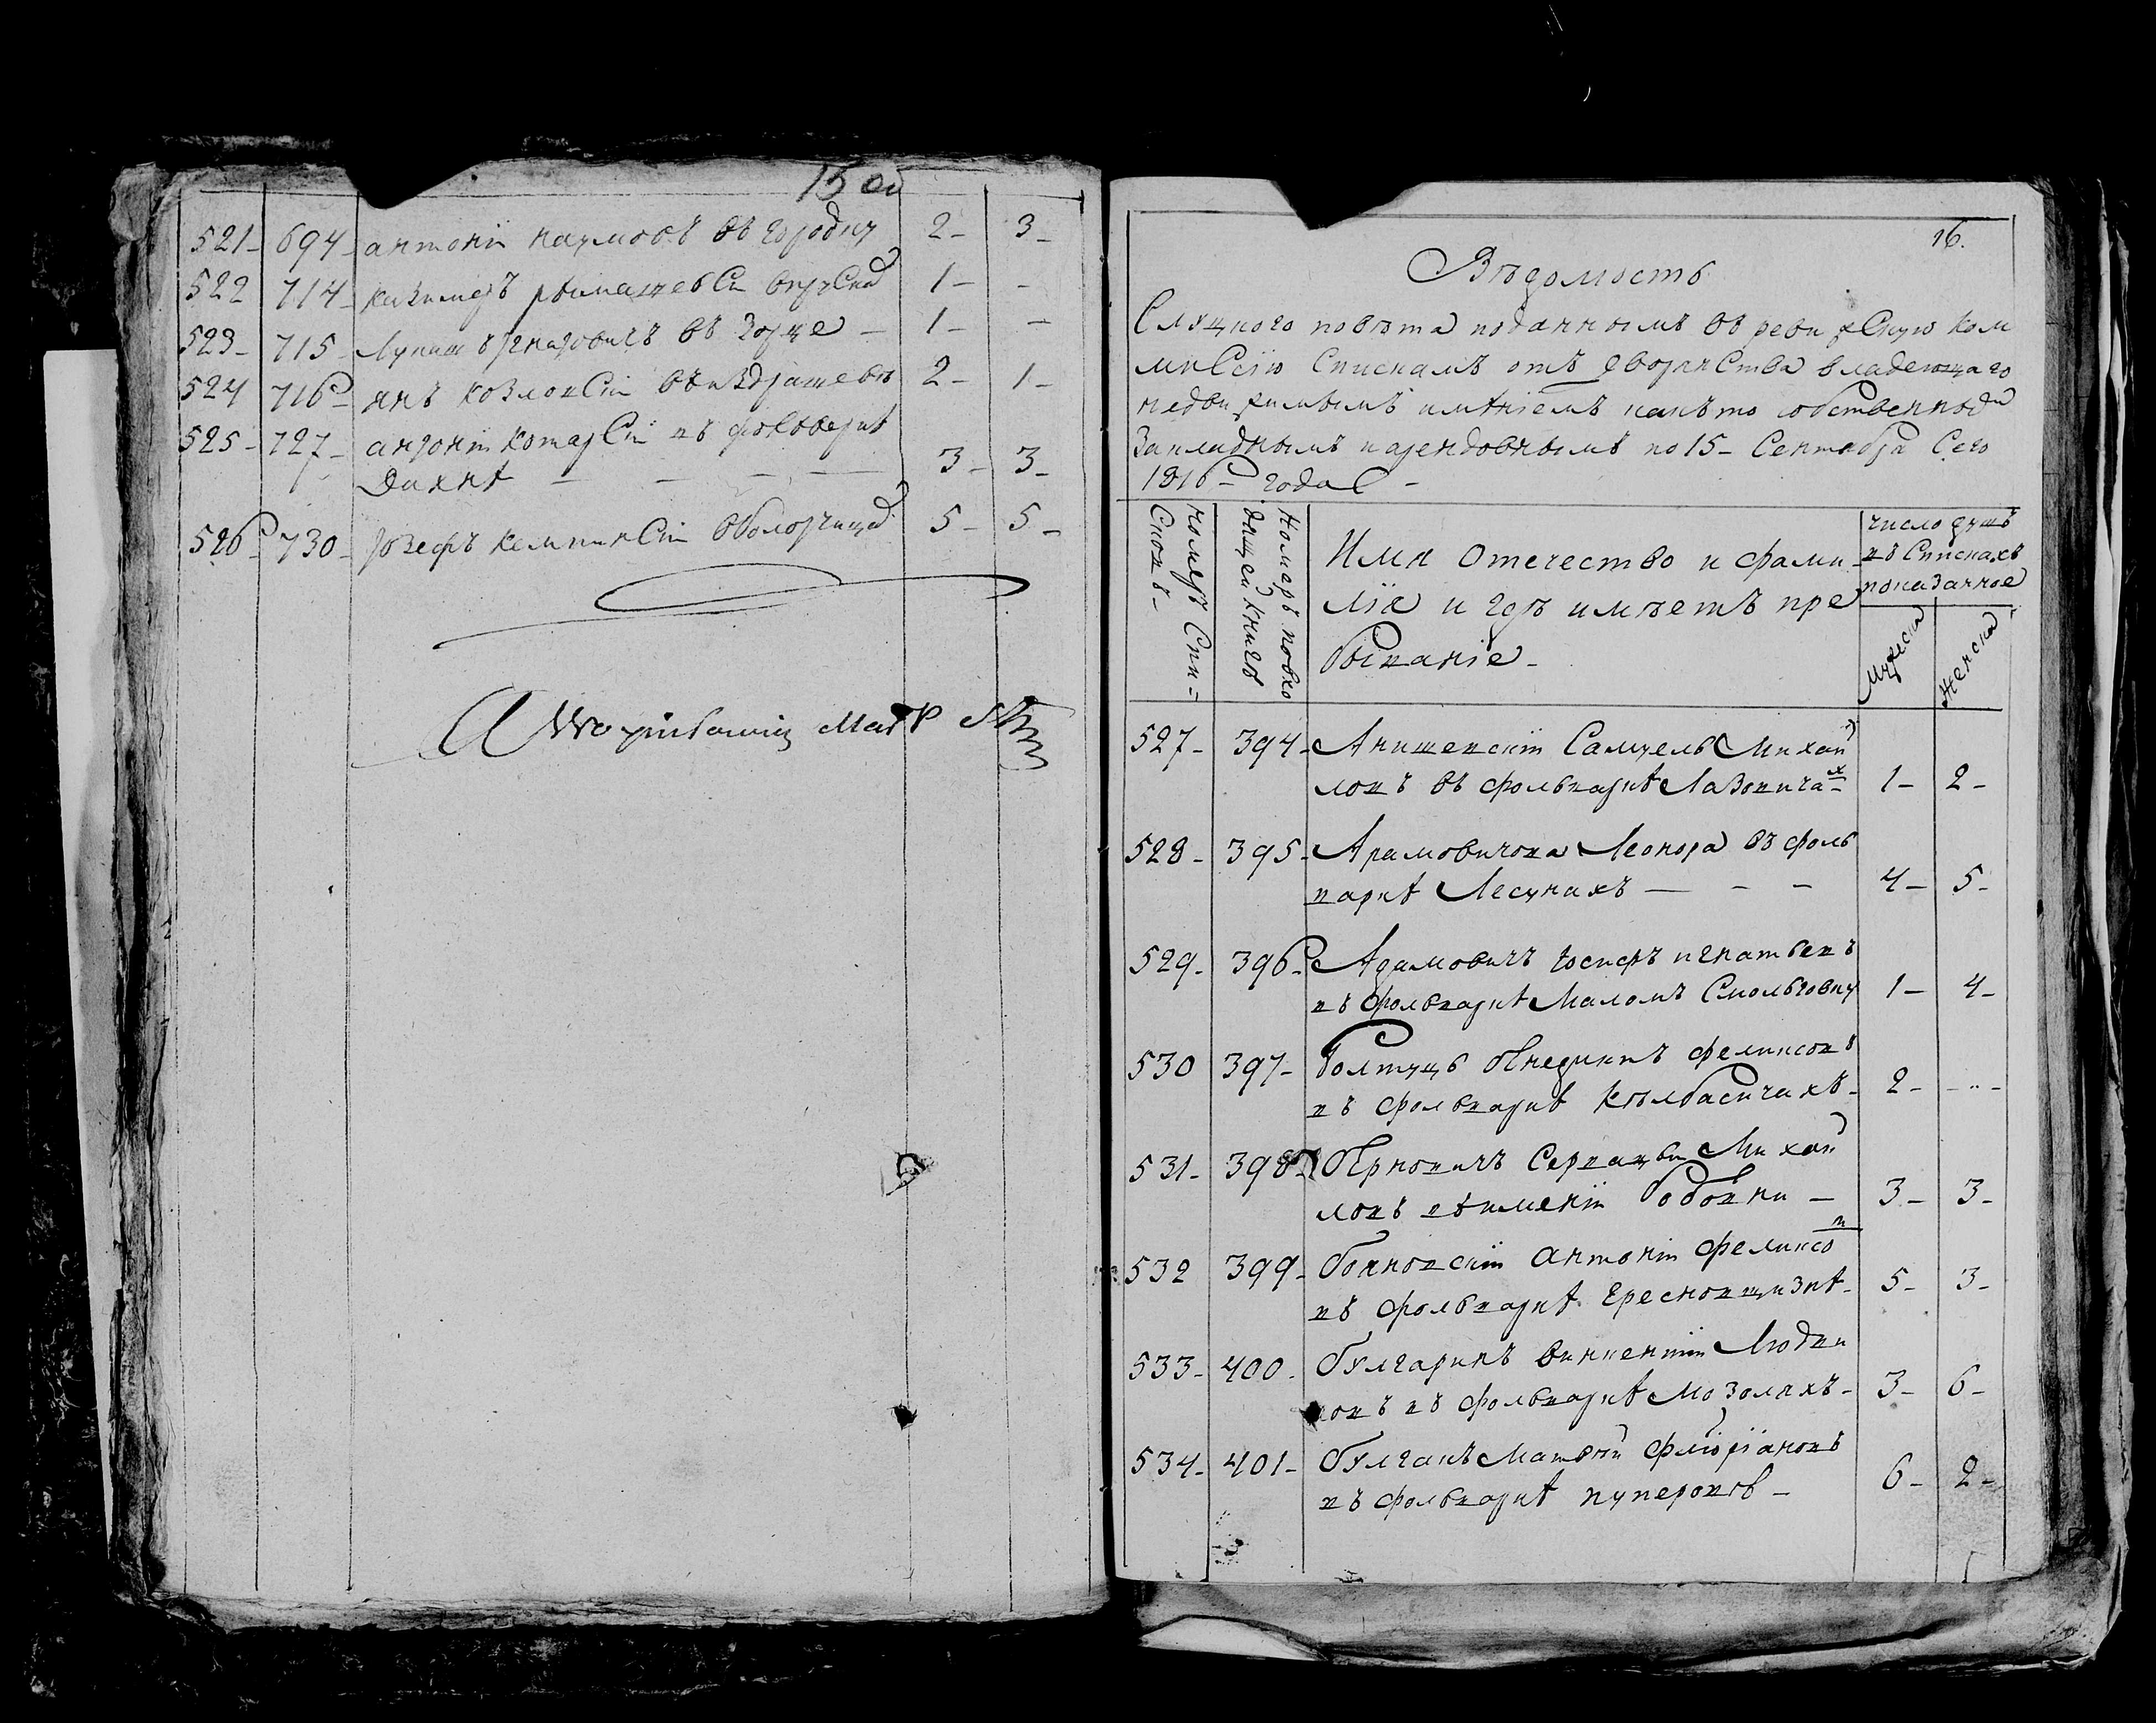 15 об
521- 694- антоній наумовъ въ городку 2- 3-
522 714- казимеръ рымашевскі 1- -
523- 715- Лукаш въ Корце - 1- -
524 716- янъ козловскій въ издрашеве 2- 1-
525- 727- антоній котарскій въ фольверкѣ
Дахнѣ - - - 3- 3-
526- 730- Юзефъ кемпинскій 5- 5-
16.
Вѣдомость
Слуцкого повѣта поданнымъ въ ревизскую ком
мисcію спискамъ отъ дворянства владеющаго
недвижимымъ имѣніемъ какъ то собственнымъ
закладнымъ и арендовнымъ по 15- Сентября сего
1816- года -
номеръ спи=
сковъ-
номеръ повхо
дящей книгѣ
Имя отечество и фами-
лія и гдѣ имѣетъ пре
бываніе-
число душъ
въ спискахъ
показанное
мужеска
женска
527- 394- Аншевскій Самуель Михай
ловъ въ фольваркѣ Лазовичах 1- 2-
528- 395- Арамовичова Леонора въ фоль
варкѣ Лесунахъ - - - 4- 5-
529- 396- Адамовичъ Іосифъ игнатьевъ
въ фольваркѣ Маломъ Смольговку 1- 4-
530 397- Болтуць бенедиктъ феликсовъ
въ фольваркѣ Кѣлбасичахъ- 2- - -
531- 398- Берновичъ Серваци Михай
ловъ въ именіи бобовни - 3- 3-
532 399- бояновскій антоній феликсов
въ фольваркѣ Ересновщизнѣ- 5- 3-
533- 400- булгаринъ винцентій Людви
ковъ въ фольваркѣ Мозоляхъ- 3- 6-
534- 401- булгакъ Матвей флюріановъ
въ фольваркѣ куперовѣ - 6- 2-